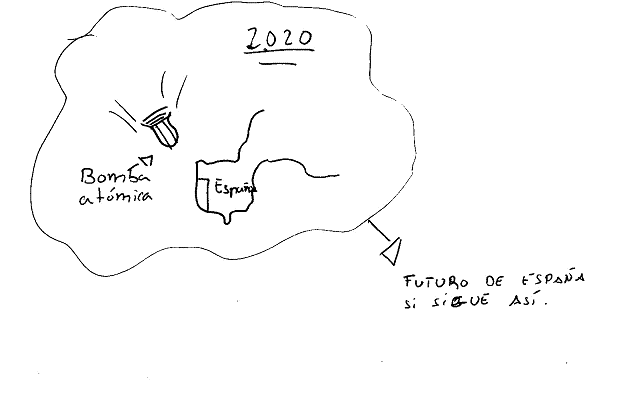 2.020
Bomba
atómica
España
FUTURO DE ESPAÑA
Si SiGUE ASÍ.